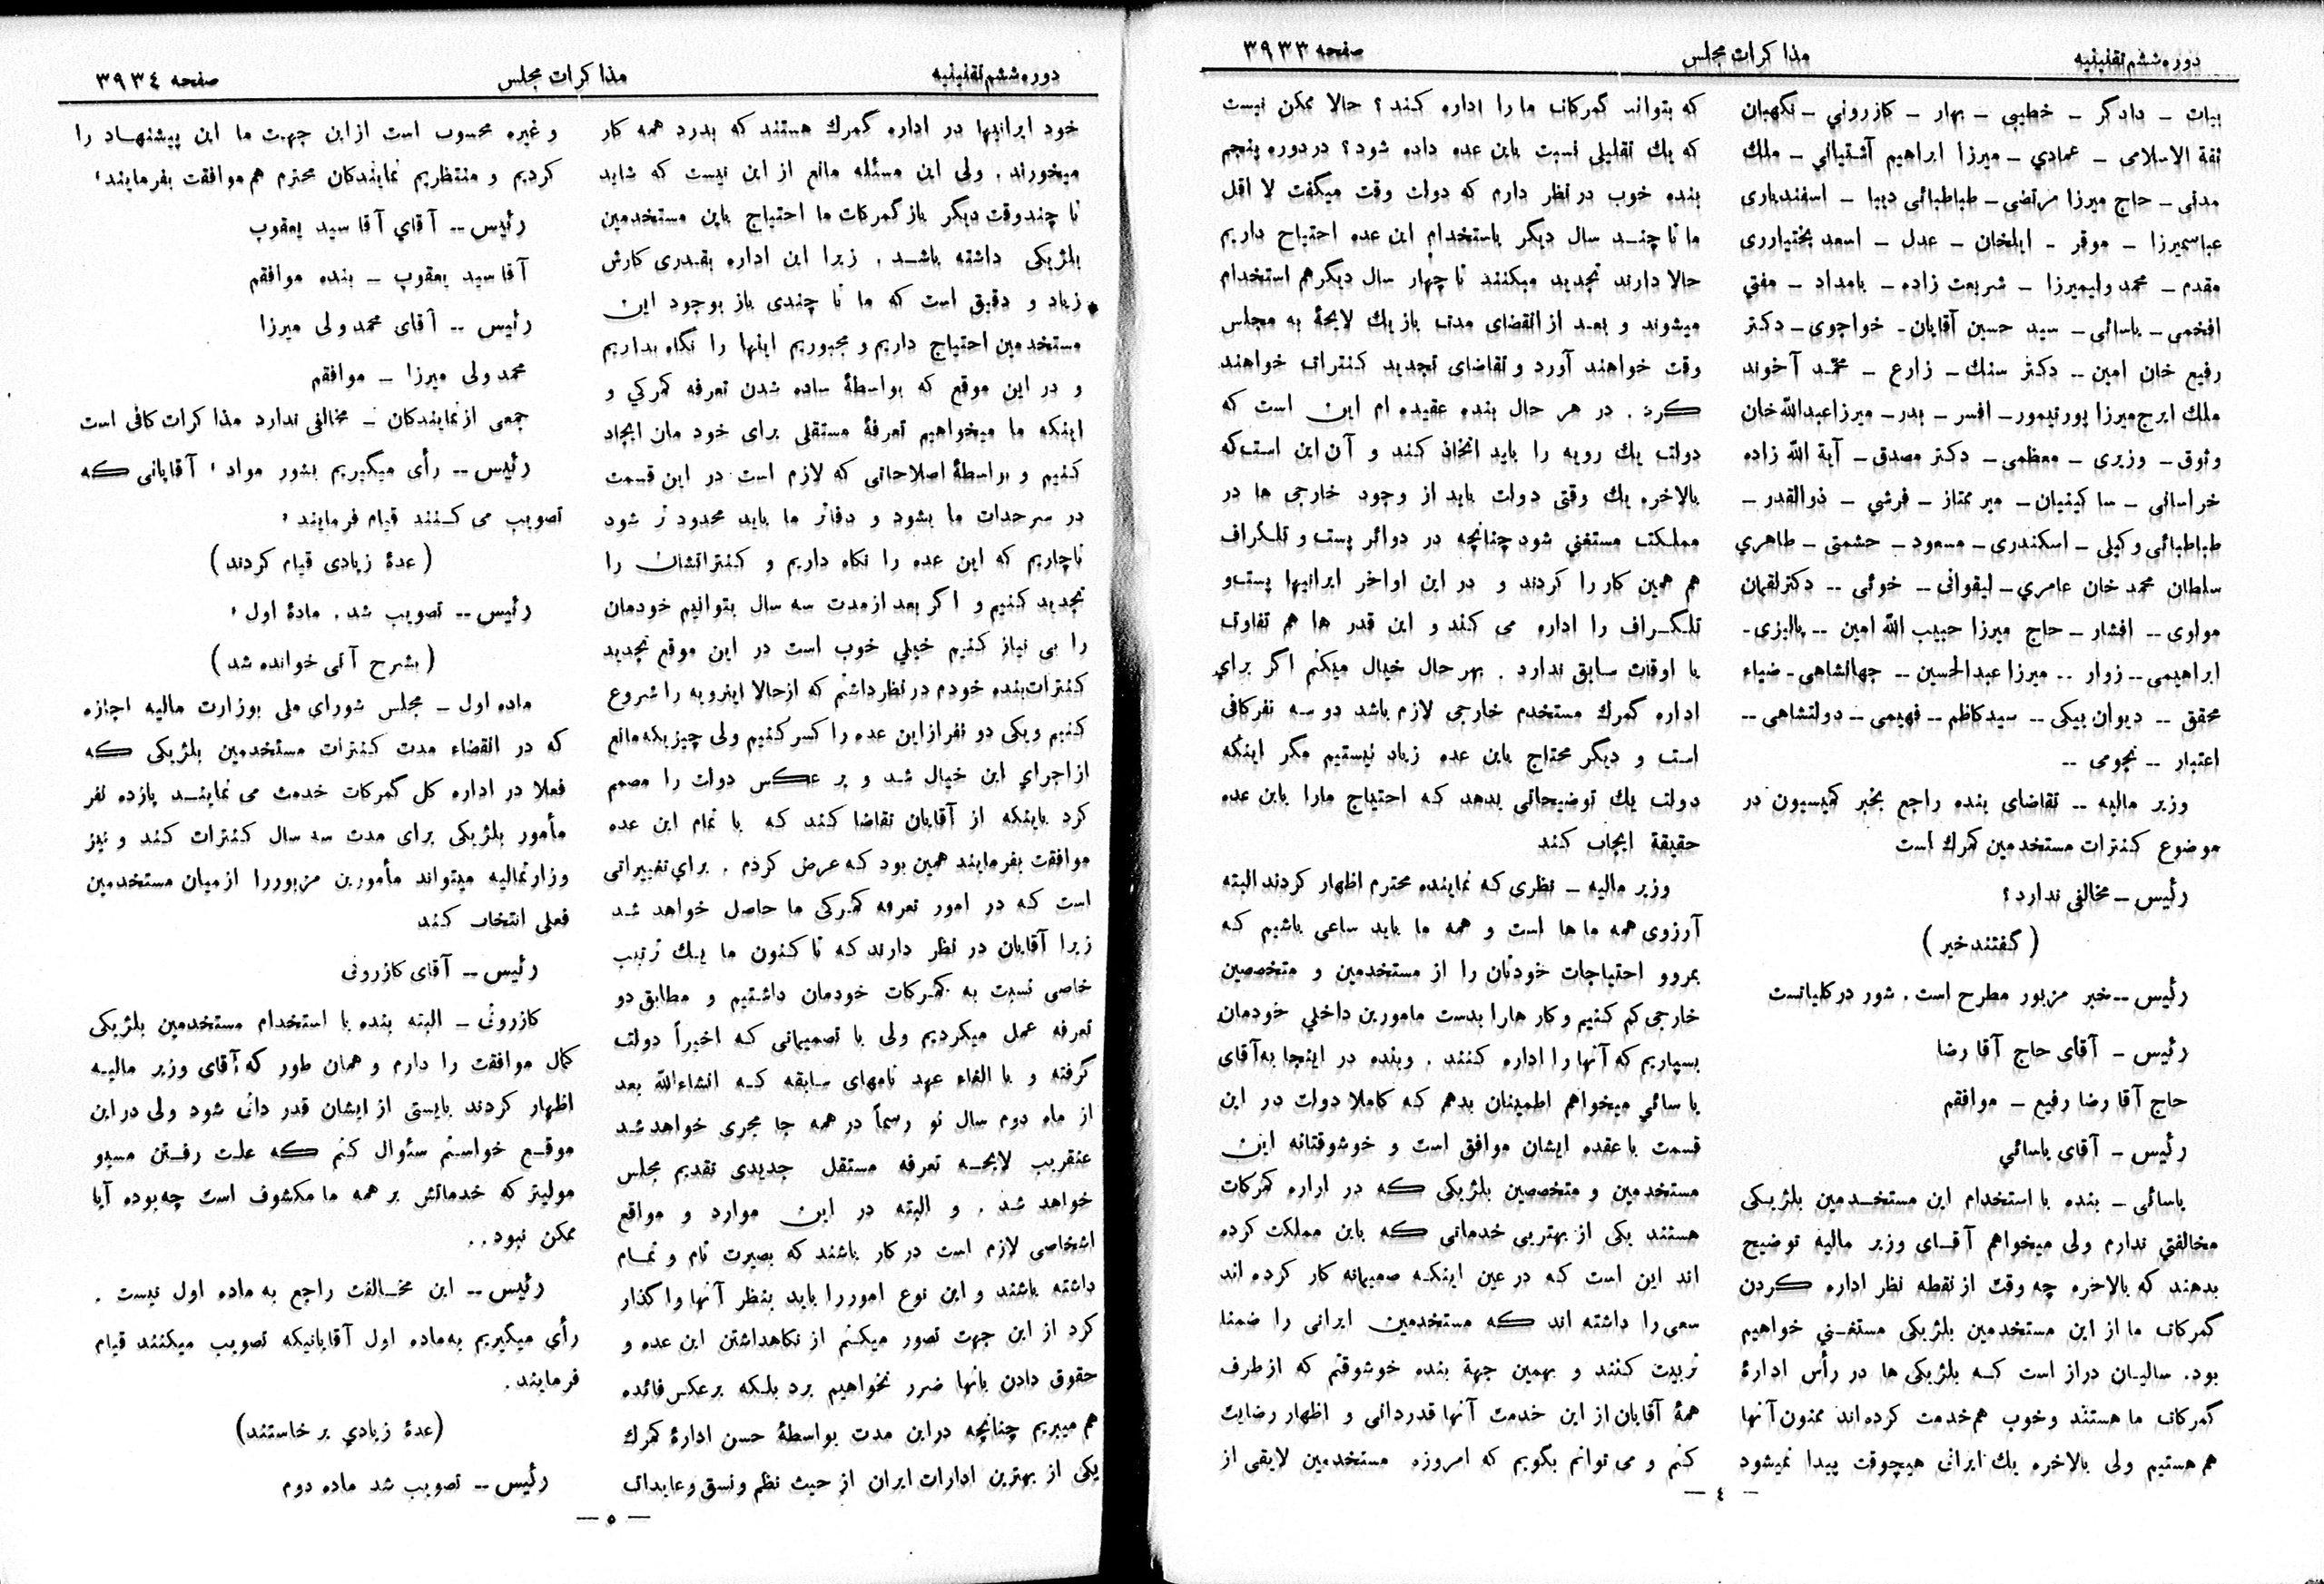 دوره ششم تقنینیه
مذاکرات مجلس
صفحه ۳۹۳۳
بیات – دادگر – خطیبی – بهار – کازرونی – نگهبان
ثقة الاسلامی – عمادی – میرزا ابراهیم آشتیانی – ملك
مدنی – حاج میرزا مرتضی – طباطبائی دیبا – اسفندیاری
عباسمیرزا – موقر – ایلخان – عدل – اسعد بختیارری
مقدم – محمد ولیمیرزا – شریعت زاده – بامداد – مفتی
افخمی – یاسائی – سید حسین آقایان – خواجوی – دکتر
رفیع خان امین -- دکتر سنك – زارع – محمد آخوند
ملك ایرج میرزا پورتیمور – افسر – بدر – میرزا عبدالله خان
وثوق – وزیری – معظمی – دکتر مصدق – آیة الله زاده
خراسانی – ساکینیان – میر ممتاز – فرشی – ذوالقدر –
طباطبائی وکیلی – اسکندری – مسعود – حشمتی – طاهری
سلطان محمد خان عامری – لیقوانی -- خوئی -- دکتر لقمان
مولوی -- افشار – حاج میرزا حبیب الله امین -- پالیزی -
ابراهیمی -- زوار -- میرزا عبدالحسین -- جهانشاهی - ضیاء
محقق -- دیوان بیکی -- سید کاظم -- فهیمی -- دولتشاهی --
اعتبار -- نجومی --
وزیر مالیه -- تقاضای بنده راجع بخبر کمیسیون در
موضوع کنترات مستخدمین کمرك است
رئیس – مخالفی ندارد؟
( گفتند خیر )
رئیس -- خبر مزبور مطرح است . شور در کلیاتست
رئیس – آقای حاج آقا رضا
حاج آقا رضا رفیع – موافقم
رئیس – آقای یاسائی
یاسائی – بنده با استخدام این مستخدمین بلژیکی
مخالفتی ندارم ولی میخواهم آقای وزیر مالیه توضیح
بدهند که بالاخره چه وقت از نقطه نظر اداره کردن
گمرکات ما از این مستخدمین بلژیکی مستغنی خواهیم
بود. سالیان دراز است که بلژیکی ها در رأس ادارهٔ
گمرکات ما هستند و خوب هم خدمت کرده اند ممنون آنها
هم هستیم ولی بالاخره یك ایرانی هیچوقت پیدا نمیشود
که بتواند گمرکات ما را اداره کند ؟ حالا ممکن نیست
که یك تقلیلی نسبت باین عده داده شود ؟ در دوره پنجم
بنده خوب در نظر دارم که دولت وقت میگفت لا اقل
ما تا چند سال دیگر باستخدام این عده احتیاح داریم
حالا دارند تجدید میکنند تا چهار سال دیگر هم استخدام
میشوند و بعد از انقضای مدت باز یك لایحهٔ به مجلس
وقت خواهند آورد و تقاضای تجدید کنترات خواهند
کرد . در هر حال بنده عقیده ام این است که
دولت یك رویه را باید اتخاذ کند و آن این است که
بالاخره یك وقتی دولت باید از وجود خارجی ها در
مملکت مستغنی شود چنانچه در دوائر پست و تلگراف
هم همین کار را کردند و در این اواخر ایرانیها پست و
تلگراف را اداره می کند و این قدر ها هم تفاوت
با اوقات سابق ندارد . بهر حال خیال میکنم اگر برای
اداره گمرك مستخدم خارجی لازم باشد دو سه نفر کافی
است و دیگر محتاج باین عده زیاد نیستیم مگر اینکه
دولت یك توضیحاتی بدهد که احتیاج مارا باین عده
حقیقة ایجاب کند
وزیر مالیه – نظری که نماینده محترم اظهار کردند البته
آرزوی همه ما ها است و همه ما باید ساعی باشیم که
بمروو احتیاجات خودتان را از مستخدمین و متخصصین
خارجی کم کنیم و کار هارا بدست مامورین داخلی خودمان
بسپاریم که آنها را اداره کنند . و بنده در اینجا به آقای
یاسائی میخواهم اطمینان بدهم که کاملا دولت در این
قسمت با عقده ایشان موافق است و خوشوقتانه این
مستخدمین و متخصصین بلژیکی که در اراره کمرکات
هستند یکی از بهتریی خدماتی که باین مملکت کرده
اند این است که در عین اینکه صمیمانه کار کرده اند
سعی را داشته اند که مستخدمین ایرانی را ضمنا
تربیت کنند و بهمین جهة بنده خوشوقتم که از طرف
همهٔ آقایان از این خدمت آنها قدردانی و اظهار رضایت
کنم و می توانم بگویم که امروزه مستخدمین لایقی از
— ٤ —
دوره ششم تقنینیه
مذاکرات مجلس
صفحه ۳۹۳٤
خود ایرانیها در اداره گمرك هستند که بدرد همه کار
میخورند . ولی این مسئله مانع از این نیست که شاید
تا چندوقت دیگر باز گمرکات ما احتیاج باین مستخدمین
بلژیکی داشته باشد . زیرا این اداره بقدری کارش
زیاد و دقیق است که ما تا چندی باز بوجود این
مستخدمین احتیاج داریم و مجبوریم اینها را نگاه بداریم
و در این موقع که بواسطهٔ ساده شدن تعرفه کمرکی و
اینکه ما میخواهیم تعرفهٔ مستقلی برای خود مان ایجاد
کنیم و بواسطهٔ اصلاحاتی که لازم است در این قسمت
در سرحدات ما بشود و دفاتر ما باید محدود تر شود
ناچاریم که این عده را نگاه داریم و کنتراتشان را
تجدید کنیم و اگر بعد از مدت سه سال بتوانیم خودمان
را بی نیاز کنیم خیلی خوب است در این موقع تجدید
کنترات بنده خودم در نظر داشتم که از حالا اینرویه را شروع
کنیم و یکی دو نفر از این عده را کسر کنیم ولی چیزیکه مانع
از اجرای این خیال شد و بر عکس دولت را مصمم
کرد باینکه از آقایان تقاضا کند که با تمام این عده
موافقت بفرمایند همین بود که عرض کردم . برای تغییراتی
است که در امور تعرفه کمرکی ما حاصل خواهد شد
زیرا آقایان در نظر دارند که تا کنون ما یك ترتیب
خاصی نسبت به گمرکات خودمان داشتیم و مطابق دو
تعرفه عمل میکردیم ولی با تصمیماتی که اخیراً دولت
گرفته و با الغاء عهد نامهای سابقه که انشاءالله بعد
از ماه دوم سال نو رسماً در همه جا مجری خواهد شد
عنقریب لایحه تعرفه مستقل جدیدی تقدیم مجلس
خواهد شد . و البته در این موارد و مواقع
اشخاصی لازم است در کار باشند که بصیرت تام و تمام
داشته باشند و این نوع امور را باید بنظر آنها واگذار
کرد از این جهت تصور میکنم از نگاهداشتن این عده و
حقوق دادن بانها ضرر نخواهیم برد بلکه برعکس فائده
هم میبریم چنانچه دراین مدت بواسطهٔ حسن ادارهٔ کمرك
یکی از بهترین ادارات ایران از حیث نظم و نسق و عایدات
و غیره محسوب است از این جهت ما این پیشنهاد را
کردیم و منتظریم نمایندکان محترم هم موافقت بفرمایند،
رئیس -- آقای آقا سید یعقوب
آقا سید یعقوب – بنده موافقم
رئیس -- آقای محمد ولی میرزا
محمد ولی میرزا – موافقم
جمعی از نمایندکان – مخالفی ندارد مذاکرات کافی است
رئیس -- رأی میگیریم بشور مواد ، آقایانی که
تصویب می کنند قیام فرمایند،
( عدهٔ زیادی قیام کردند )
رئیس -- تصویب شد . مادهٔ اول ،
( بشرح آتی خوانده شد )
ماده اول – مجلس شورای ملی بوزارت مالیه اجازه
که در انقضاء مدت کنترات مستخدمین بلژیکی که
فعلا در اداره کل گمرکات خدمت می نمایند یازده نفر
مأمور بلژیکی برای مدت سه سال کنترات کند و نیز
وزارتمالیه میتواند مأمورین مزبوررا از میان مستخدمین
فعلی انتخاب کند
رئیس -- آقای کازرونی
کازرونی – البته بنده با استخدام مستخدمین بلژیکی
کمال موافقت را دارم و همان طور که آقای وزیر مالیه
اظهار کردند بایستی از ایشان قدر دانی شود ولی در این
موقع خواستم سئوال کنم که علت رفتن مسیو
مولیتر که خدماتش بر همه ما مکشوف است چه بوده آیا
ممکن نبود . .
رئیس -- این مخالفت راجع به ماده اول نیست .
رأی میگیریم به ماده اول آقایانیکه تصویب میکنند قیام
فرمایند .
(عدهٔ زیادی بر خاستند)
رئیس -- تصویب شد ماده دوم
— ٥ —